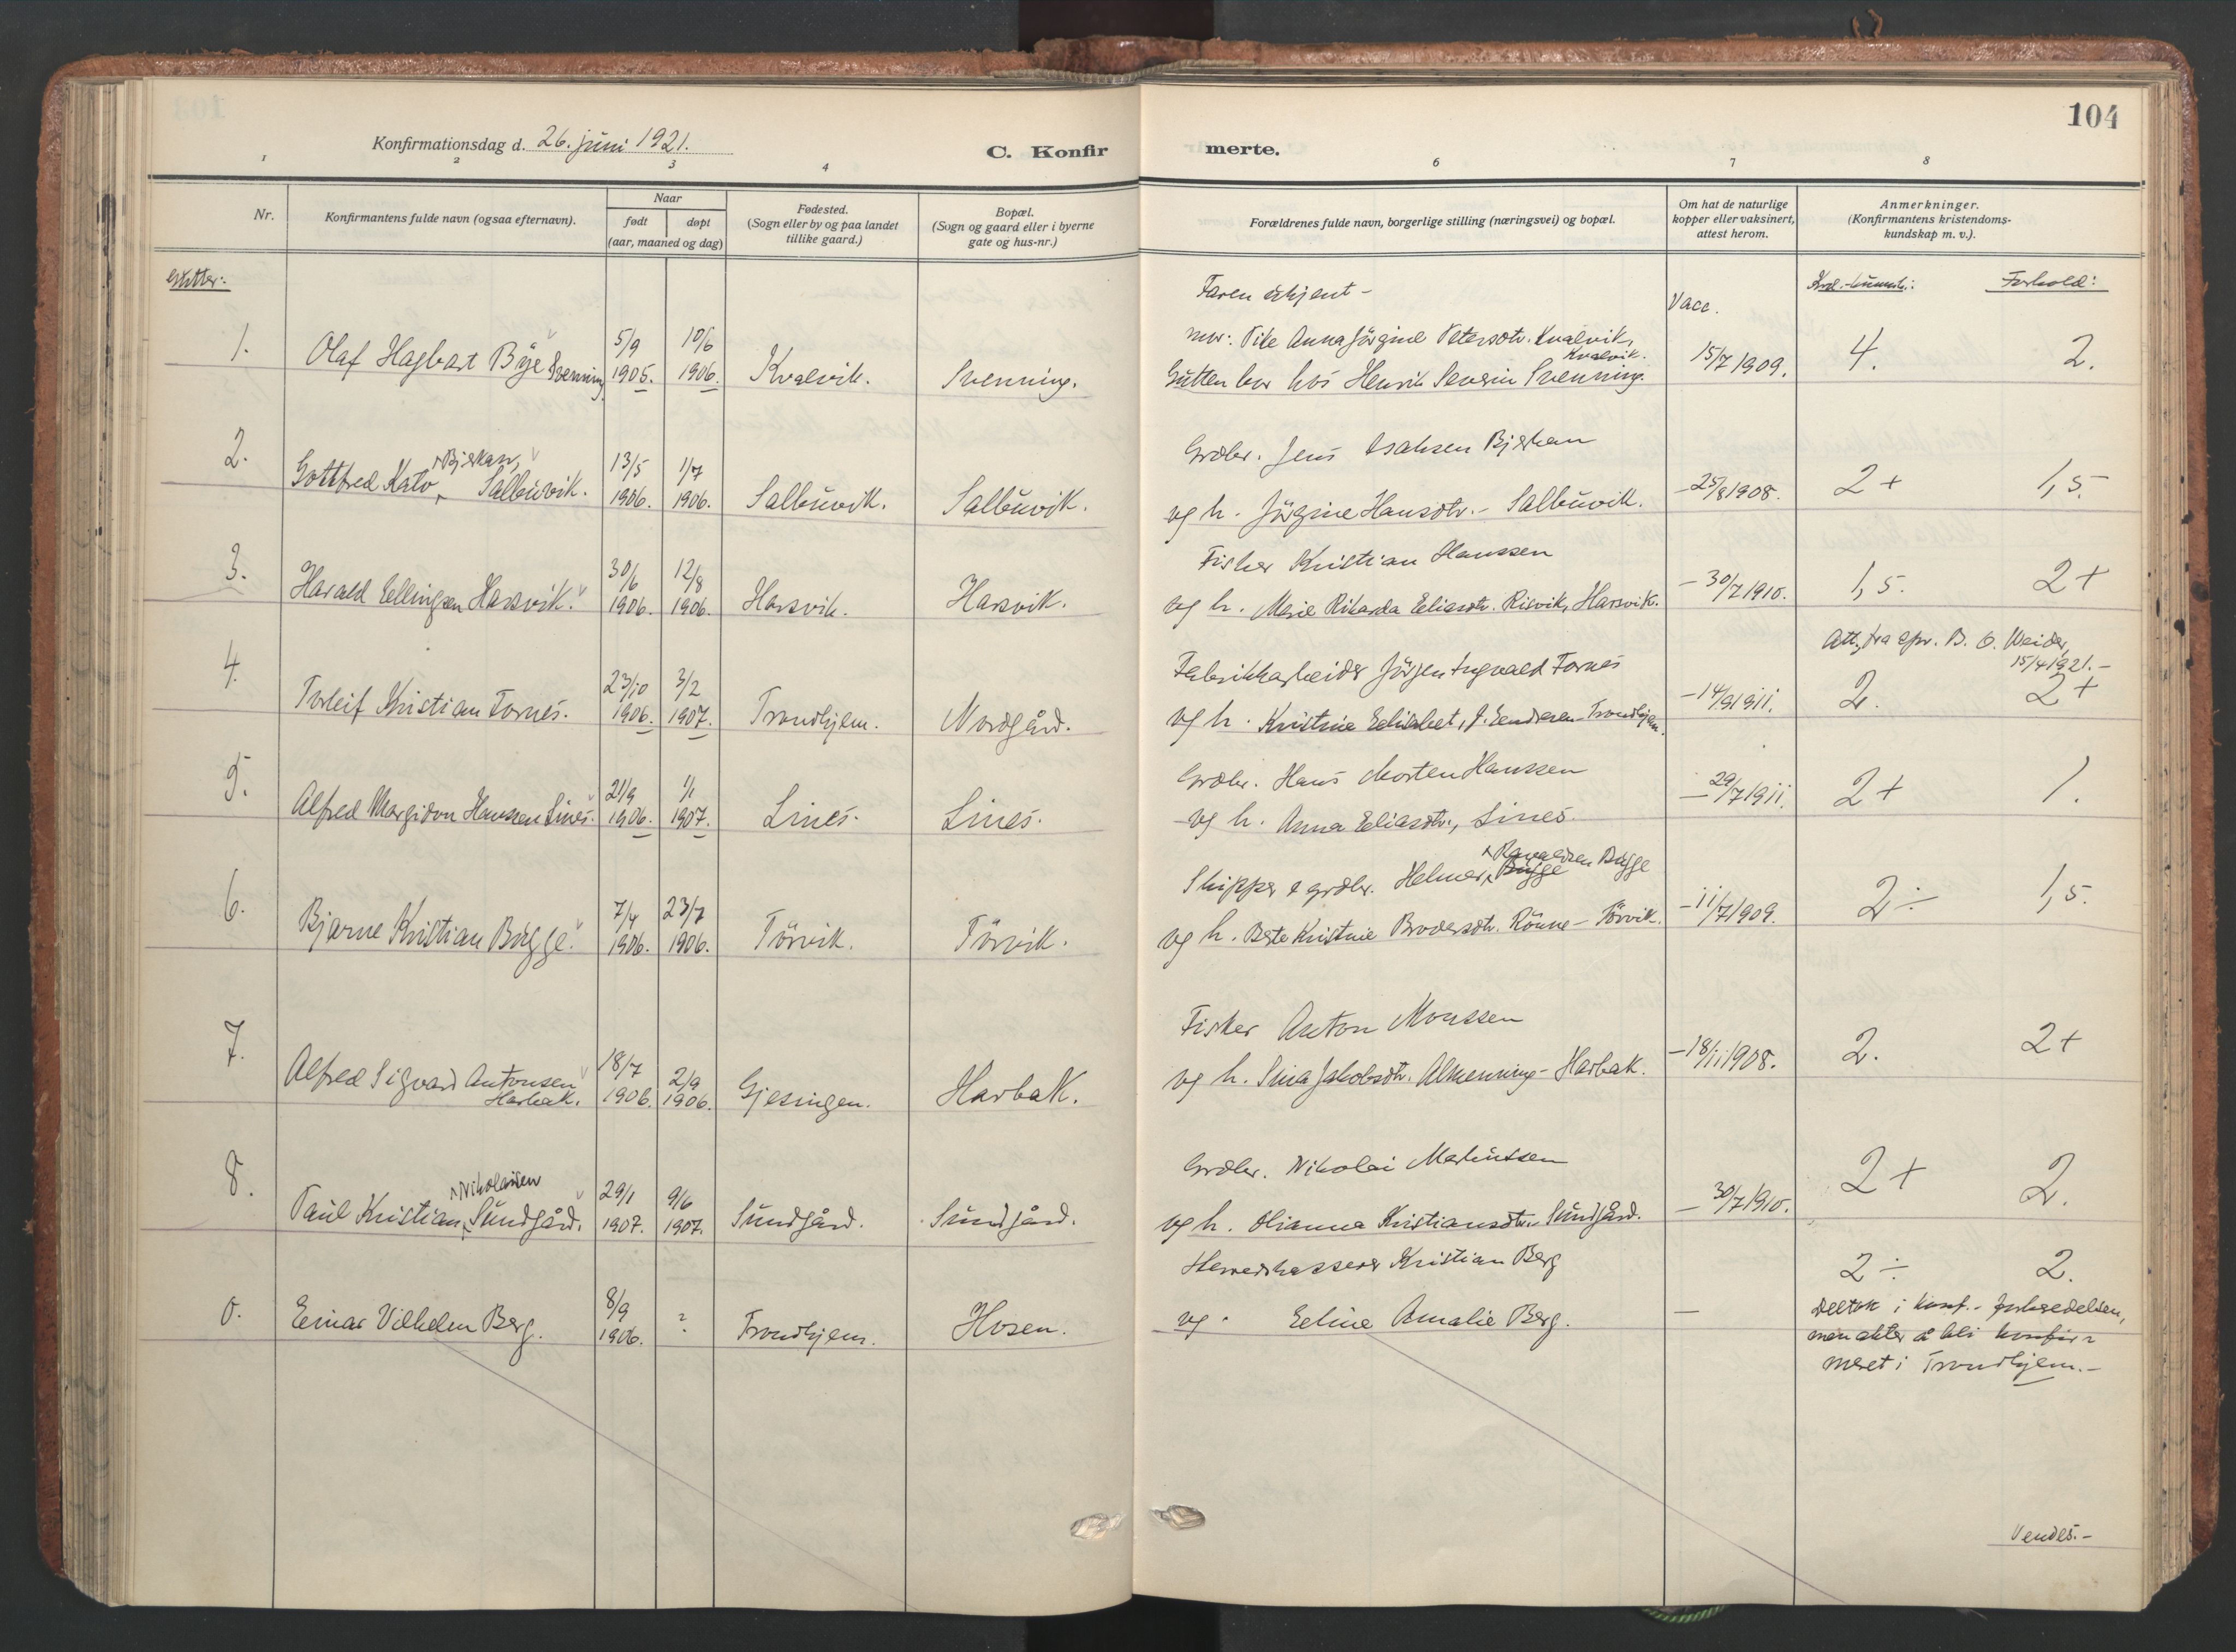 104
Konfirmationsdag d. 26. juni 1921.
C. Konfir merte.
1 2 3 4 6 7 8
Nr.
Konfirmantens fulde navn (ogsaa efternavn).
Naar
født døpt
(aar, maaned og dag)
Fødested.
(Sogn eller by og paa landet
tillike gaard.)
Bopæl.
(Sogn og gaard eller i byerne
gate og hus-nr.)
Forældrenes fulde navn, borgerlige stilling (næringsvei) og bopæl.
Om hat de naturlige
kopper eller vaksinert,
attest herom.
Anmerkninger.
(Konfirmantens kristendoms-
kundskap m. v.).
Gutter:
Forhold:
Faren ukjent -
Vacc.
1. Olaf Hagbart Bye Svenning
5/9 1905. 10/6 1906.
Kvalvik. Svenning.
mor: Pike Anna Jörgine Petersdtr. Kvalvik,
Kvalvik.
Gutten bor hos Henrik Severin Svenning.
15/7 1909. 4. 2.
2. Gottfred Kato Bjørkan, Salbuvik.
13/5 1906. 1/7 1906.
Salbuvik. Salbuvik.
Grdbr. Jens Isaksen Bjørkan
og h. Jörgine Hansdtr. - Salbuvik.
- 25/8 1908. 2+ 1,5.
3. Harald Ellingsen Harsvik.
30/6 1906. 12/8 1906.
Harsvik. Harsvik.
Fisker Kristian Hanssen
og h. Marie Rikarda Eliasdtr. Risvik, Harsvik.
- 30/7 1910. 1,5. 2+
4. Torleif Kristian Fornes.
23/10 1906. 3/2 1907.
Trondhjem. Nordgård.
Fabrikkarbeider Jörgen Ingvald Fornes
og h. Kristine Elisabet, Trondhjem.
- 14/9 1911.
Att. fra spr. B. O. Weider,
15/4 1921. -
2. 2+
5. Alfred Margidon Hanssen Lines.
21/9 1906. 1/1 1907.
Lines. Lines.
Grdbr. Hans Morten Hanssen
og h. Anna Eliasdtr., Lines.
- 29/7 1911. 2+ 1.
6. Bjarne Kristian Bugge.
7/4 1906. 23/7 1906.
Törvik. Törvik.
Skipper & grdbr. Helmer Bugge
og h. Berte Kristine Brodersdtr. Rönne - Törvik.
- 11/7 1909. 2÷ 1,5.
7. Alfred Sigvard Antonsen
Harbak.
18/7 1906. 2/9 1906.
Gjesingen. Harbak.
Fisker Anton Monssen
og h. Sina Jakobsdtr. Almenning - Harbak.
- 18/11 1908. 2. 2+
8. Paul Kristian Nikolaisen Sundgård.
29/1 1907. 9/6 1907.
Sundgård. Sundgård.
Grdbr. Nikolai Martinsen
og h. Olianna Kristiansdtr. Sundgård.
- 30/7 1910. 2+ 2.
0. Einar Vilhelm Berg.
8/9 1906. ?
Trondhjem. Hosen.
Herredskasserer Kristian Berg
og Eline Amalie Berg.
-
2÷ 2.
Deltok i konf.-forberedelsen,
men akter å bli konfir=
meret i Trondhjem. -
Vendes. -